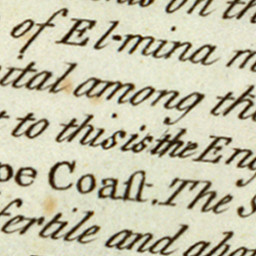 on th
of El-mina m
ital among the
t to this is the Eng
pe Coaſt. The s
fertile and abou